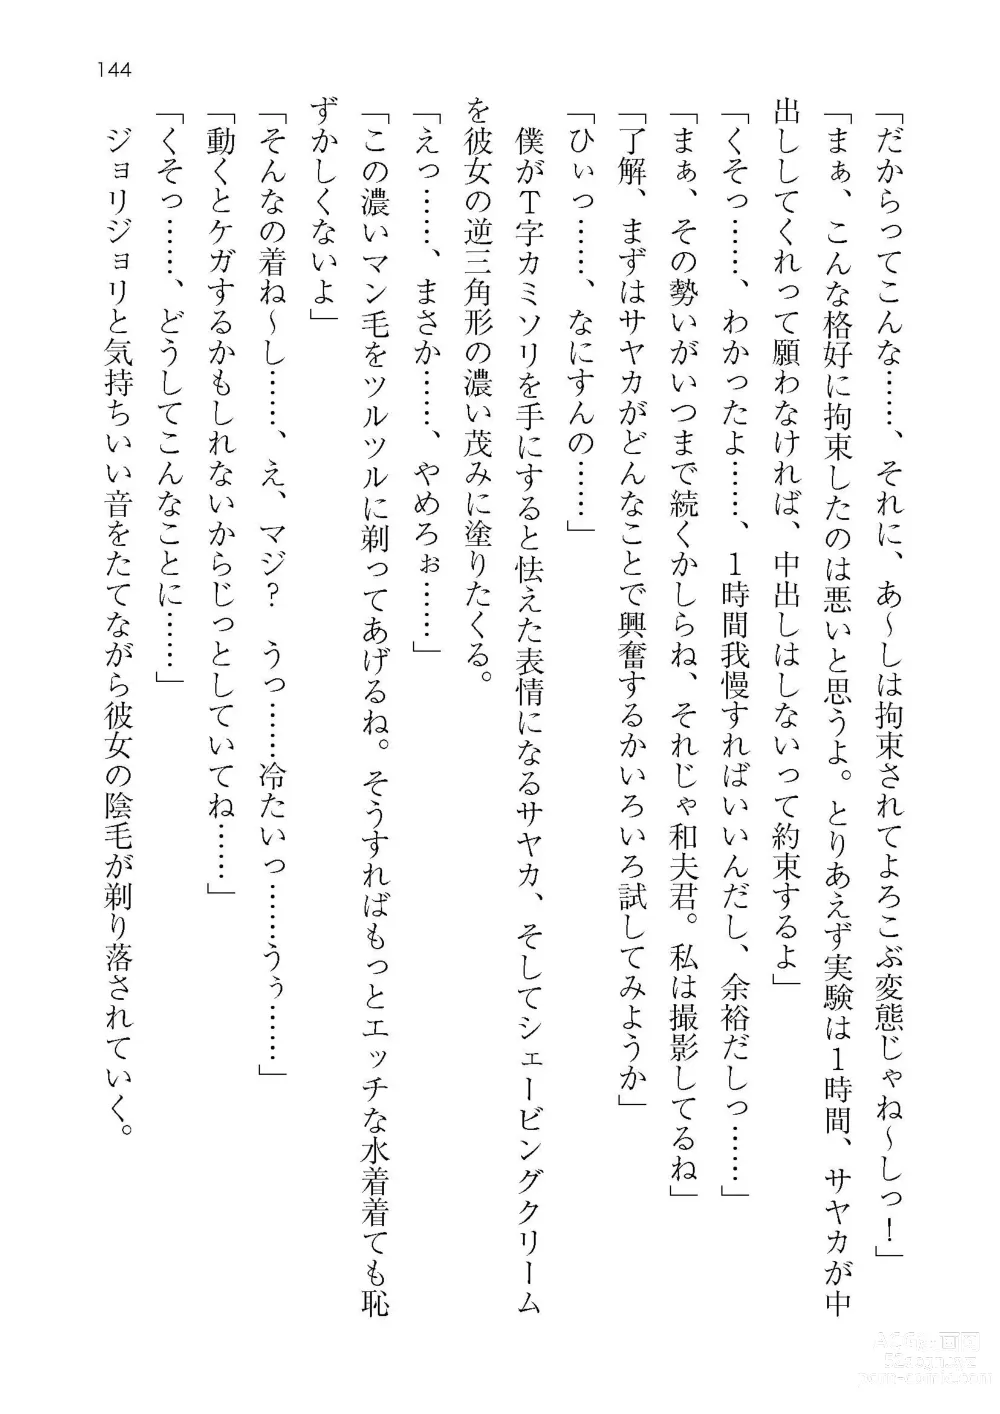 144
「だからってこんな……、それに、あ〜しは拘束されてよろこぶ変態じゃね〜しっ！」
「まぁ、こんな格好に拘束したのは悪いと思うよ。とりあえず実験は１時間、サヤカが中
出ししてくれって願わなければ、中出しはしないって約束するよ」
「くそっ……、わかったよ……、１時間我慢すればいいんだし、余裕だしっ……」
「まぁ、その勢いがいつまで続くかしらね、それじゃ和夫君。私は撮影してるね」
「了解、まずはサヤカがどんなことで興奮するかいろいろ試してみようか」
「ひぃっ……、なにすんの……」
僕がＴ字カミソリを手にすると怯えた表情になるサヤカ、そしてシェービングクリーム
を彼女の逆三角形の濃い茂みに塗りたくる。
「えっ……、まさか……、やめろぉ……」
「この濃いマン毛をツルツルに剃ってあげるね。そうすればもっとエッチな水着着ても恥
ずかしくないよ」
「そんなの着ね〜し……、え、マジ？　うっ……冷たいっ……うぅ……」
「動くとケガするかもしれないからじっとしていてね……」
「くそっ……、どうしてこんなことに……」
ジョリジョリと気持ちいい音をたてながら彼女の陰毛が剃り落されていく。